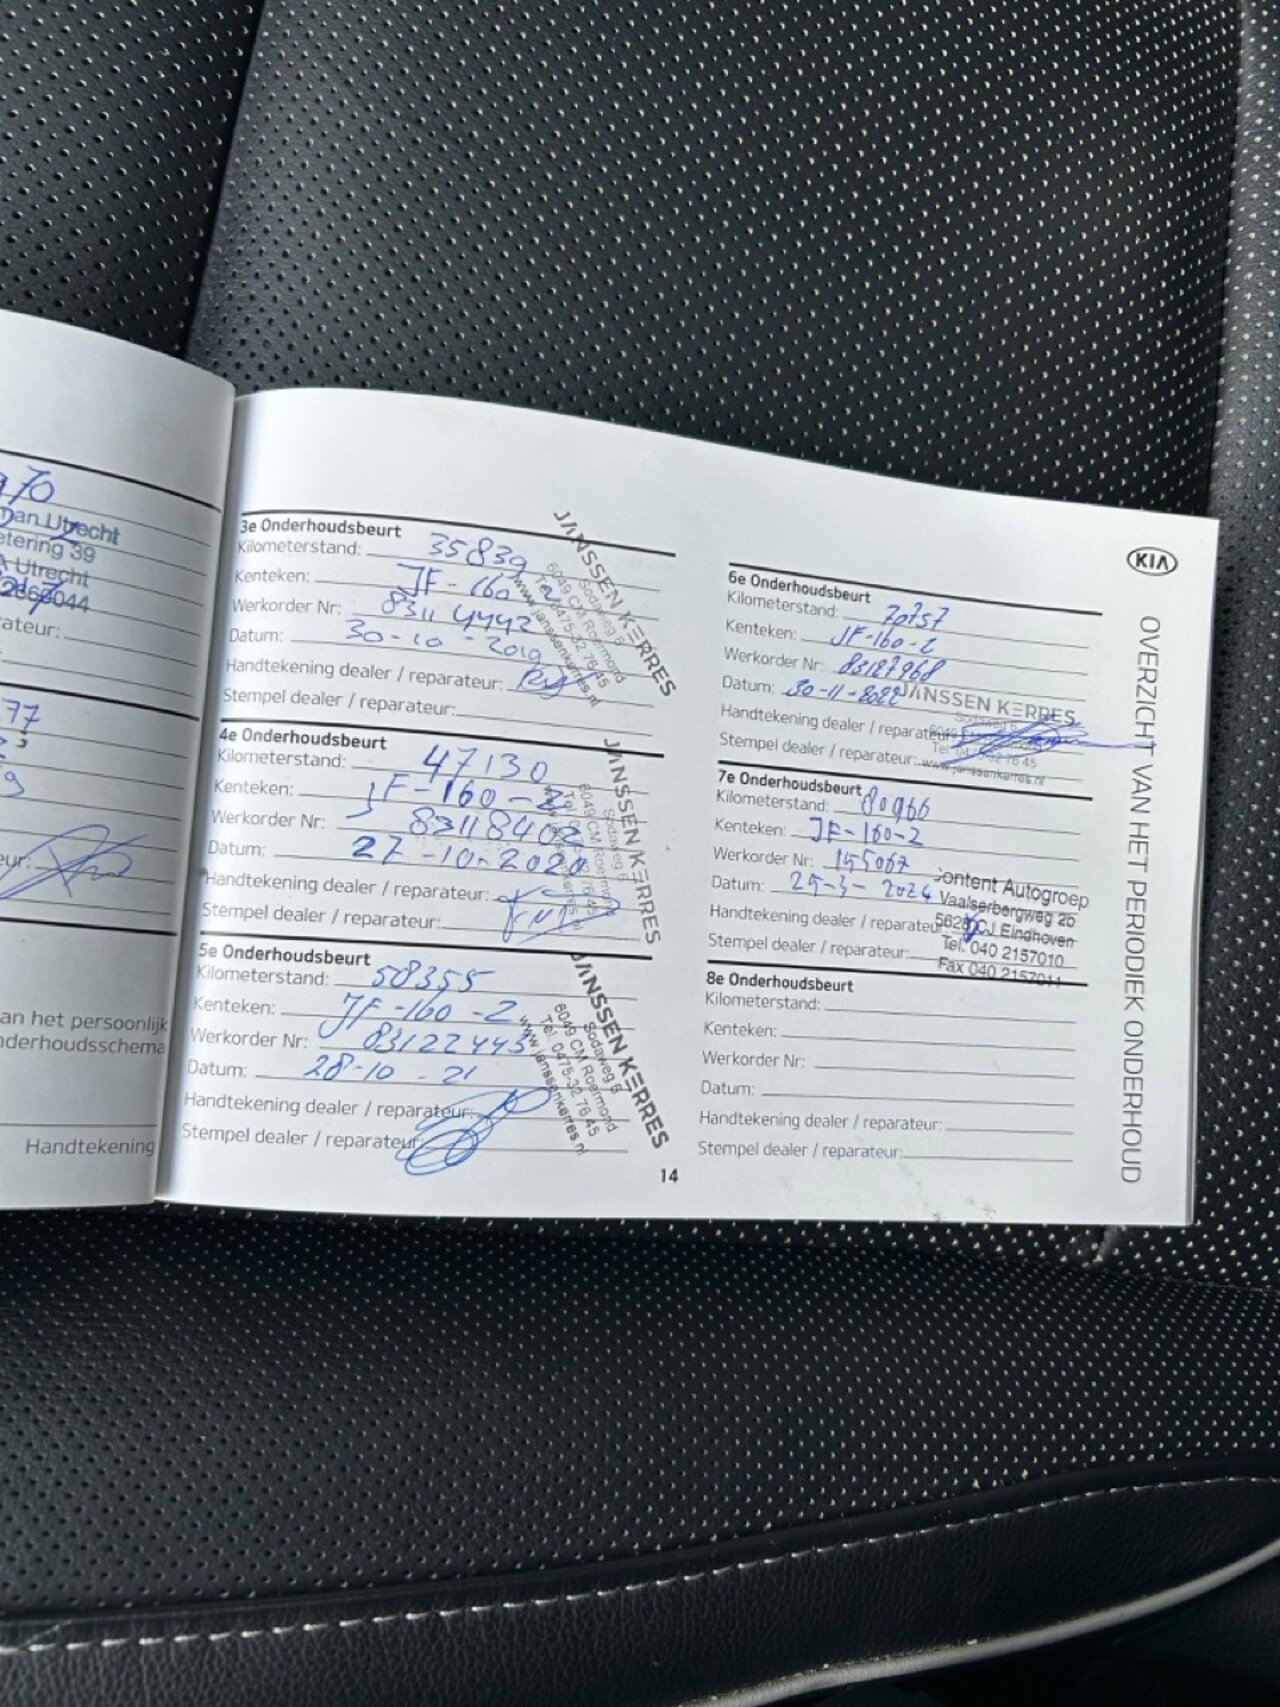 70
Utrecht
39
Utrecht
ateur:
77
eur:
an het persoonlijk
nderhoudsschema
Handtekening
3e Onderhoudsbeurt
Kilometerstand: 35839
Kenteken: JF-160
Werkorder Nr: 83114442
Datum: 30-10-2019
Handtekening dealer / reparateur:
Stempel dealer / reparateur:
JANSSEN KERRES
Sodaweg 6
6049 CM Roermond
Tel. 0475-32 76 45
www.janssenkerres.nl
4e Onderhoudsbeurt
Kilometerstand: 47130
Kenteken: JF-160-2
Werkorder Nr: 8311840
Datum: 27-10-2020
Handtekening dealer / reparateur:
Stempel dealer / reparateur:
JANSSEN KERRES
Sodaweg 6
6049 CM Roermond
5e Onderhoudsbeurt
Kilometerstand: 58355
Kenteken: JF-160-2
Werkorder Nr: 83122443
Datum: 28-10-21
Handtekening dealer / reparateur:
Stempel dealer / reparateur:
JANSSEN KERRES
Sodaweg 6
6049 CM Roermond
Tel. 0475-32 76 45
www.janssenkerres.nl
14
6e Onderhoudsbeurt
Kilometerstand: 70757
Kenteken: JF-160-2
Werkorder Nr: 83127968
Datum: 30-11-2022
Handtekening dealer / reparateur:
Stempel dealer / reparateur:
JANSSEN KERRES
Sodaweg 6
www.janssenkerres.nl
7e Onderhoudsbeurt
Kilometerstand: 80966
Kenteken: JF-160-2
Werkorder Nr: 155067
Datum: 25-3-2024
Handtekening dealer / reparateur:
Stempel dealer / reparateur:
Content Autogroep
Vaalserbergweg 2b
5628 CJ Eindhoven
Tel. 040 2157010
Fax 040 2157011
8e Onderhoudsbeurt
Kilometerstand:
Kenteken:
Werkorder Nr:
Datum:
Handtekening dealer / reparateur:
Stempel dealer / reparateur:
KIA
OVERZICHT VAN HET PERIODIEK ONDERHOUD